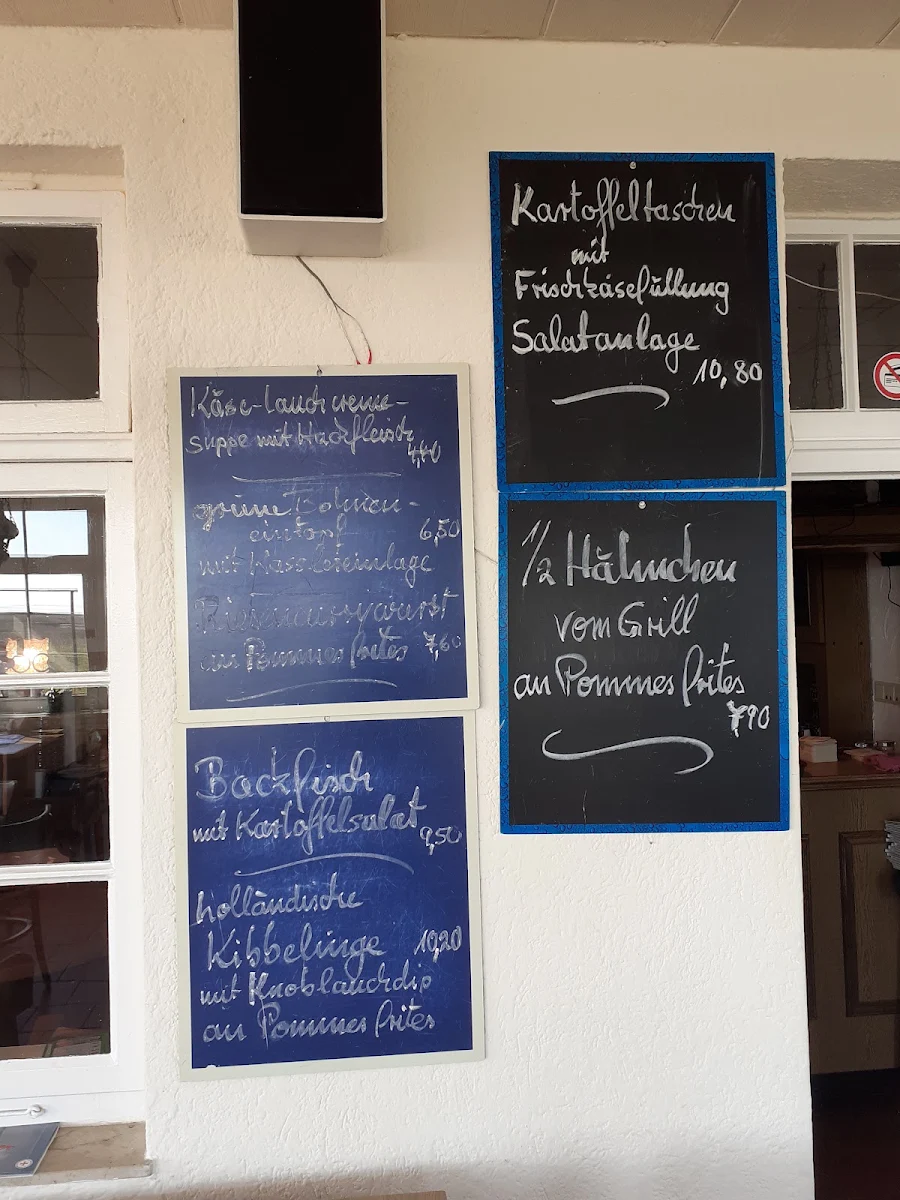 Käse-Lauchcreme-
suppe mit Hackfleisch
4,40
grüne Bohnen-
eintopf 6,50
mit Kasslereinlage
Riesencurrywurst
an Pommes frites 7,60
Backfisch
mit Kartoffelsalat
9,50
holländische
Kibbelinge 10,20
mit Knoblauchdip
an Pommes frites
Kartoffeltaschen
mit
Frischkäsefüllung
Salatanlage
10,80
1/2 Hähnchen
vom Grill
an Pommes frites
7,90